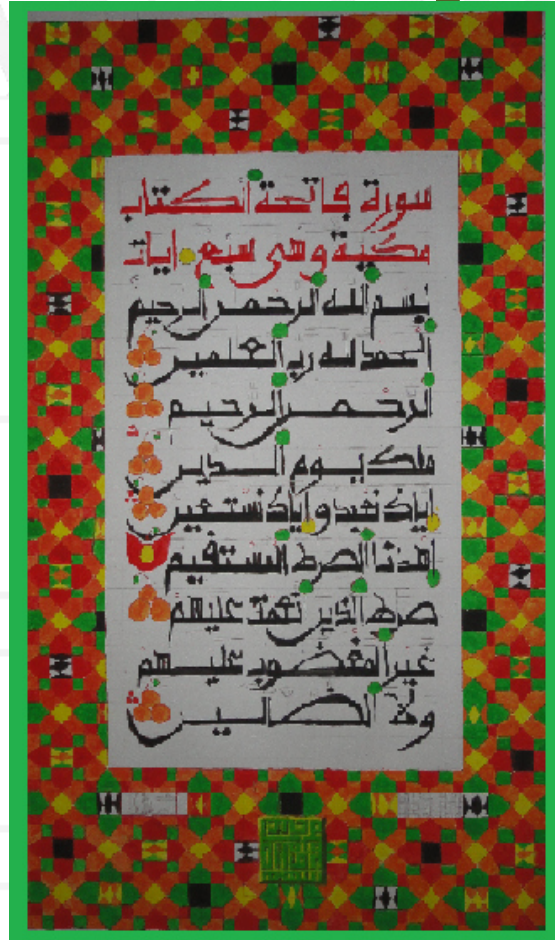 سورة فاتحة الكتاب
مكية وهى سبع ايات
بسم الله الرحمن الرحيم
الحمد لله رب العلمين
الرحمن الرحيم
ملك يوم الدين
اياك نعبد و اياك نستعين
اهدنا الصرط المستقيم
صرط الذين انعمت عليهم
غير المغضوب عليهم
ولا الضالين